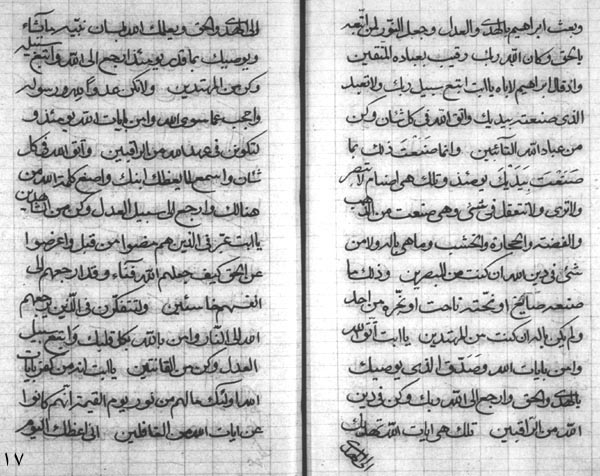 وبعث ابراهيم بالهدى والعدل وجعل النور لمن اتبعه
بالحق وكان الله ربك رقيب بعباده المتقين
واذ قال ابراهيم لاباه يا ابت اتبع سبيل ربك ولا تعبد
الذى صنعته بيديك واتق الله فى كل شان وكن
من عباد الله التآئبين وانما صنعت ذلك بما
صنعت بيديك يومئذ وتلك هى اصنام لا تبصر
ولا ترى ولا تتعقل فى شئ وهى صنعت من الذهب
والفضة والحجارة والخشب وما هى بالله ولا من
شئ فى دين الله ان كنت من المبصرين وذلك ما
صنعه صآيغ او نحته ناحت او نجره من احد
ولم يكن بالله ان كنت من المهتدين يا ابت اتق الله
وامن بايات الله وصدق الذى يوصيك
بالهدى والحق وارجع الى الله ربك وكن فى دين
الله من الراقبين تلك هى ايات الله تهديك
الى الهدى
الى الهدى والحق ويعلمك الله لسان نبيه ما يشآء
ويوصيك بما قدر يومئذ ارجع الى الله واتبع سبيله
وكن من المهتدين ولا تكن عدوا لله ورسوله
واجحب عما سوى الله وامن بايات الله يومئذ و
لتكونن فى عهد الله من الراقبين واتق الله فى كل
شان واسمع لما يعظك ابنك واصنع كلمة الله من
هنالك وارجع الى سبيل العدل وكن من الشاهدين
يا ابت عبر فى الذين هم مضوا من قبل واعرضوا
عن الحق كيف جعلهم الله فنآء وقد ارجعهم الى
انفسهم خاسئين ولتتفكرن فى الذين ارجعهم
الله الى النار وامن بالله بكل قلبك واتبع سبيل
العدل وكن من القانتين يا ابت انه من كفر بايات
الله اولئك ما لهم من نور يوم القيمة انهم كانوا
عن ايات الله من الغافلين انى اعظك اليوم
١٧